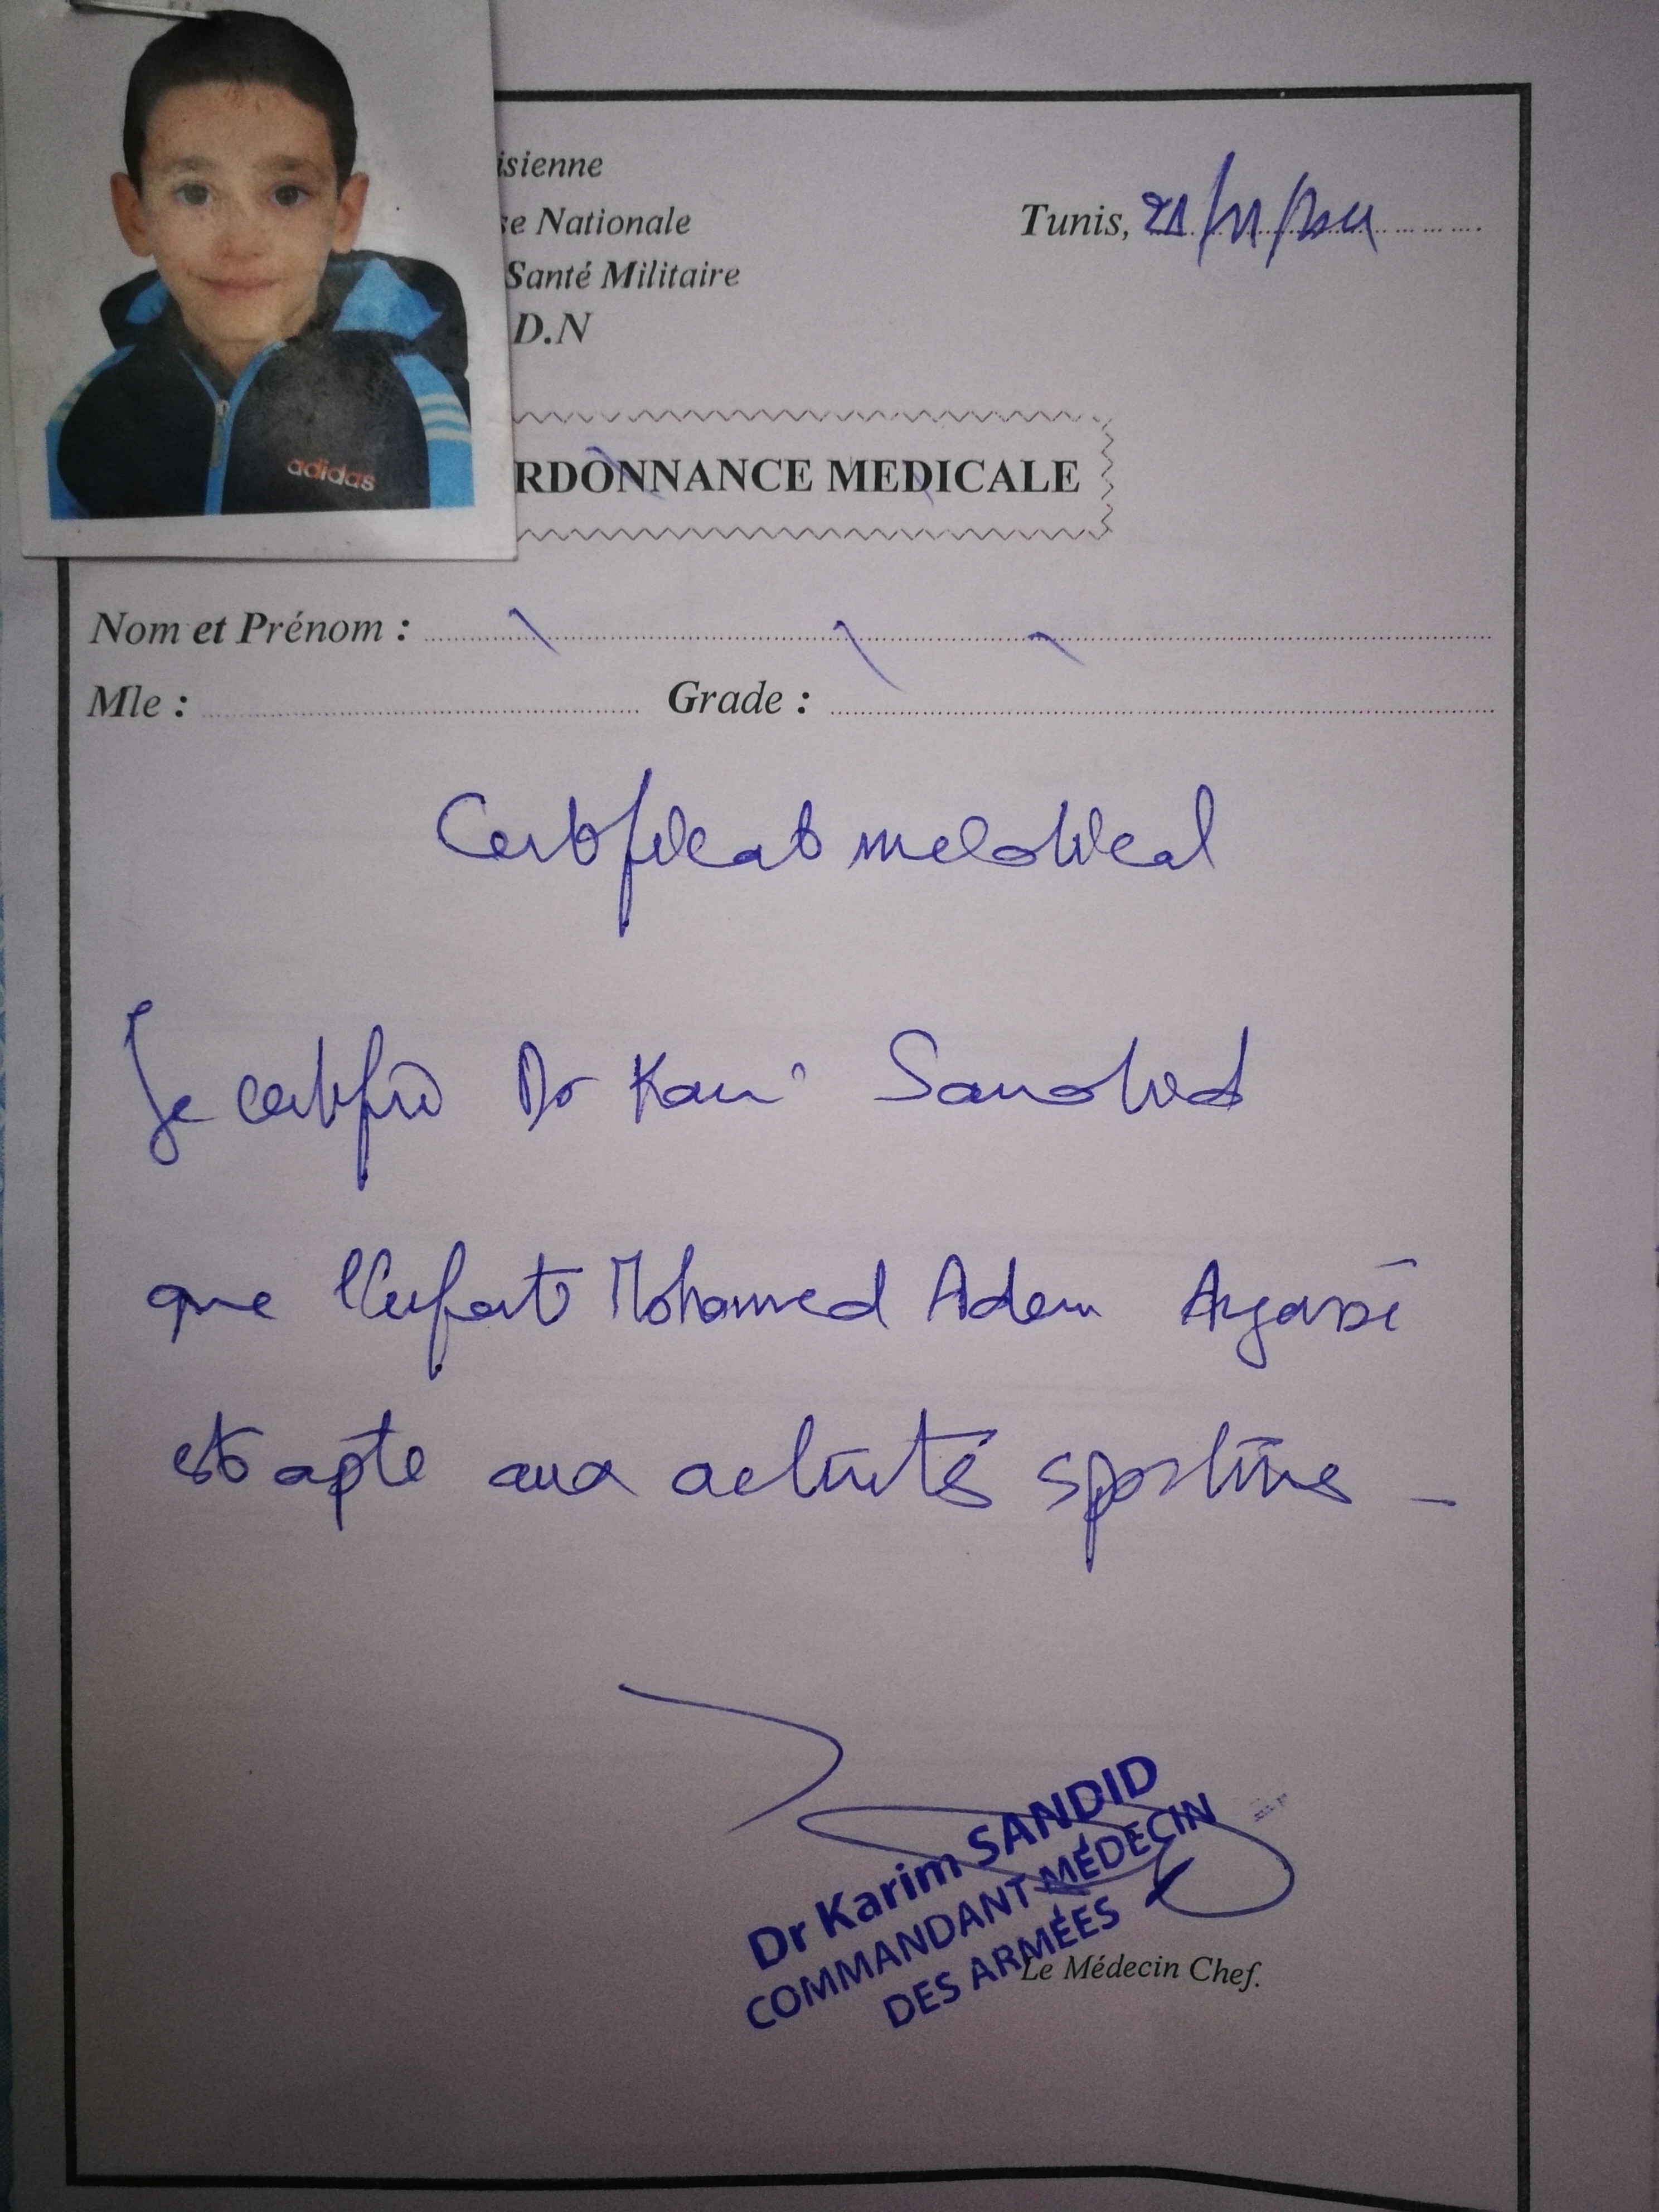 adidas
isienne
se Nationale
Santé Militaire
D.N
Tunis, 21/11/2021
RDONNANCE MEDICALE
Nom et Prénom :
Mle : Grade :
Certificat medical
Je certifie Dr Karim Sandid
que l'enfant Mohamed Adem Ayassi
est apte aux activités sportives
Dr Karim SANDID
COMMANDANT MÉDECIN
DES ARMÉES
Le Médecin Chef.